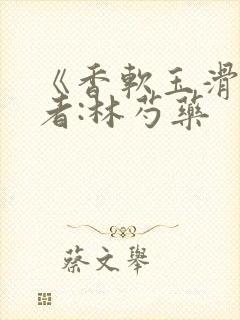 《香軟玉滑
者:林芍藥
蔡文舉